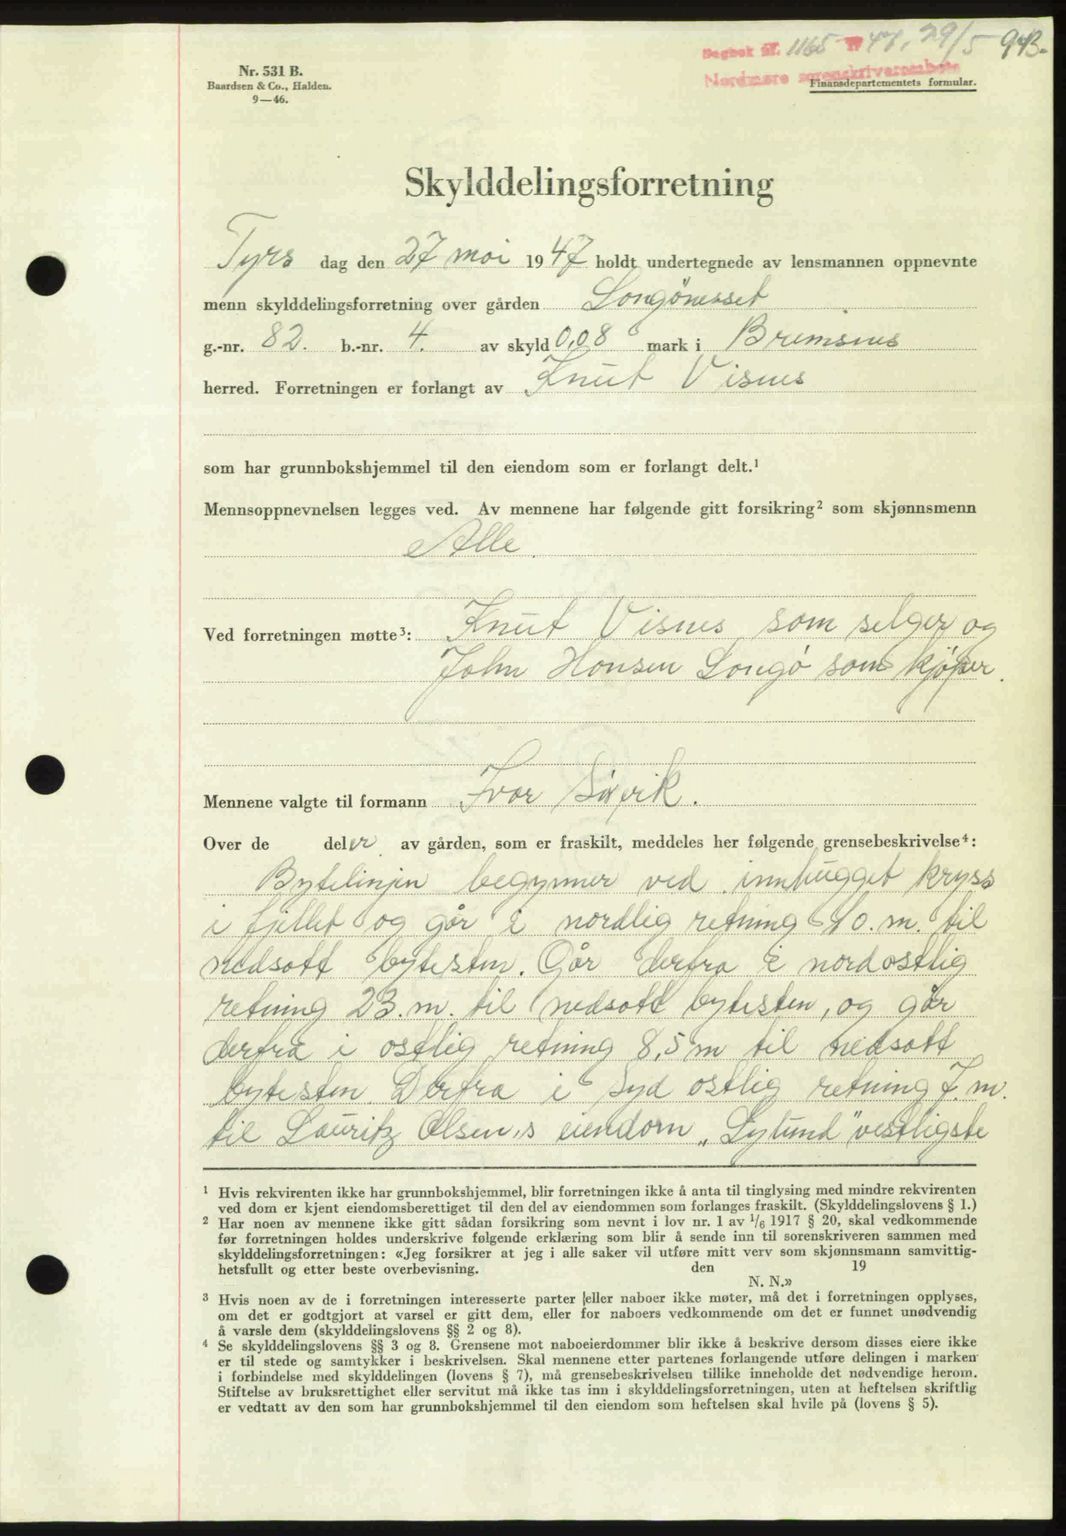 Dagbok nr. 1165 19 47, 29/5 943.
Nordmøre sorenskriverembete
Nr. 531 B.
Baardsen & Co., Halden.
9—46.
Finansdepartementets formular.
Skylddelingsforretning
Tyrs dag den 27 mai 1947 holdt undertegnede av lensmannen oppnevnte
menn skylddelingsforretning over gården Longönesset
g.-nr. 82. b.-nr. 4. av skyld 0,08 mark i Bremsnes
herred. Forretningen er forlangt av Knut Visnes
som har grunnbokshjemmel til den eiendom som er forlangt delt.¹
Mennsoppnevnelsen legges ved. Av mennene har følgende gitt forsikring² som skjønnsmenn
Alle.
Ved forretningen møtte³: Knut Visnes som selger og
John Honsen Longø som kjøper.
Mennene valgte til formann Ivar Søvik.
Over de deler av gården, som er fraskilt, meddeles her følgende grensebeskrivelse⁴:
Bytelinjen begynner ved innhugget kryss
i fjellet og går i nordlig retning 40.m. til
nedsatt bytesten. Går derfra i nordostlig
retning 23.m. til nedsatt bytesten, og går
derfra i ostlig retning 8,5 m til nedsatt
bytesten. Derfra i syd ostlig retning 7.m.
til Lauritz Olsen,s eiendom „Sylund" vestligste
¹ Hvis rekvirenten ikke har grunnbokshjemmel, blir forretningen ikke å anta til tinglysing med mindre rekvirenten
ved dom er kjent eiendomsberettiget til den del av eiendommen som forlanges fraskilt. (Skylddelingslovens § 1.)
² Har noen av mennene ikke gitt sådan forsikring som nevnt i lov nr. 1 av 1/6 1917 § 20, skal vedkommende
før forretningen holdes underskrive følgende erklæring som blir å sende inn til sorenskriveren sammen med
skylddelingsforretningen: «Jeg forsikrer at jeg i alle saker vil utføre mitt verv som skjønnsmann samvittig-
hetsfullt og etter beste overbevisning. den 19
N. N.»
³ Hvis noen av de i forretningen interesserte parter eller naboer ikke møter, må det i forretningen opplyses,
om det er godtgjort at varsel er gitt dem, eller for naboers vedkommende om det er funnet unødvendig
å varsle dem (skylddelingslovens §§ 2 og 8).
⁴ Se skylddelingslovens §§ 3 og 8. Grensene mot naboeierdommer blir ikke å beskrive dersom disses eiere ikke
er til stede og samtykker i beskrivelsen. Skal mennene etter partenes forlangende utføre delingen i marken
i forbindelse med skylddelingen (lovens § 7), må grensebeskrivelsen tillike inneholde det nødvendige herom.
Stiftelse av bruksrettighet eller servitut må ikke tas inn i skylddelingsforretningen, uten at heftelsen skriftlig
er vedtatt av den som har grunnbokshjemmel til den eiendom som heftelsen skal hvile på (lovens § 5).